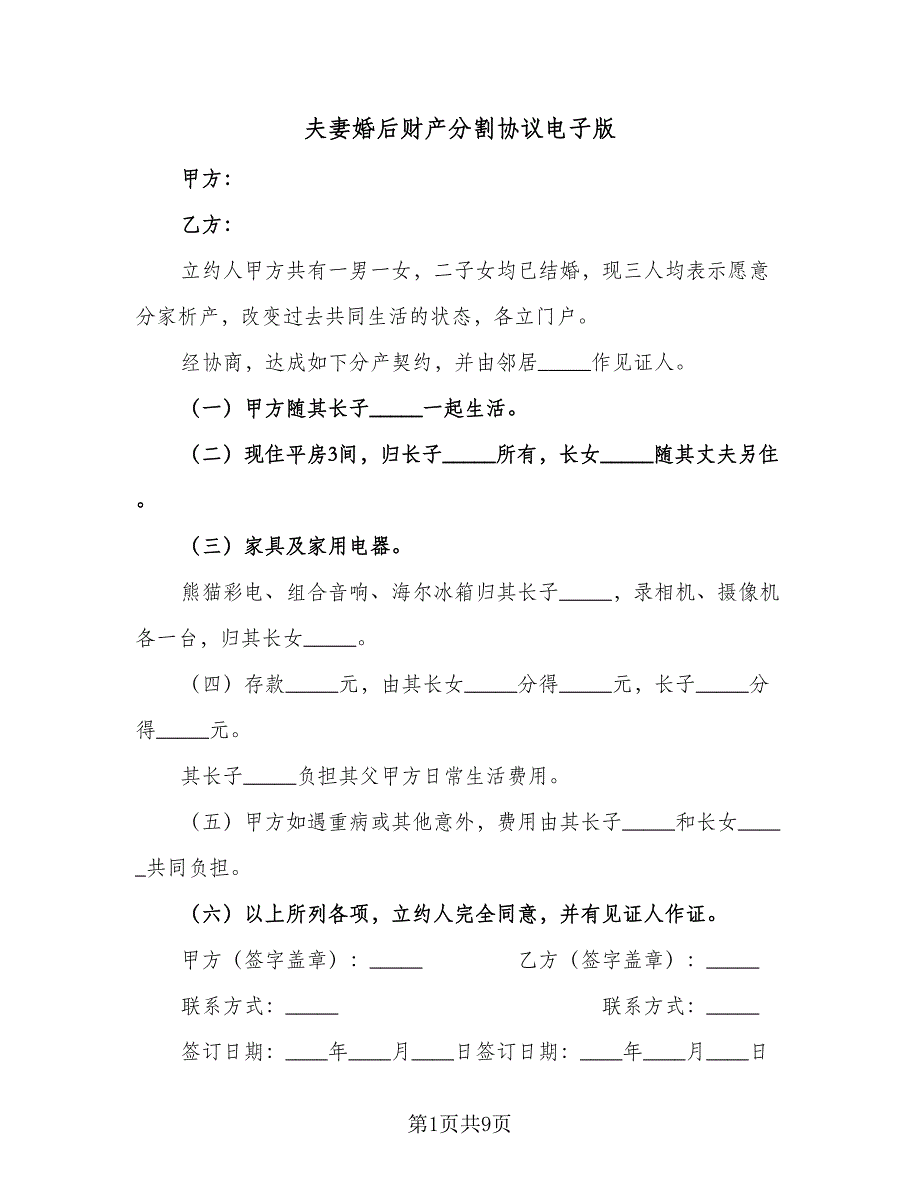 夫妻婚后财产分割协议电子版
甲方：
乙方：
立约人甲方共有一男一女，二子女均已结婚，现三人均表示愿意
分家析产，改变过去共同生活的状态，各立门户。
经协商，达成如下分产契约，并由邻居_____作见证人。
（一）甲方随其长子_____一起生活。
（二）现住平房3间，归长子_____所有，长女_____随其丈夫另住
。
（三）家具及家用电器。
熊猫彩电、组合音响、海尔冰箱归其长子_____，录相机、摄像机
各一台，归其长女_____。
（四）存款_____元，由其长女_____分得_____元，长子_____分
得_____元。
其长子_____负担其父甲方日常生活费用。
（五）甲方如遇重病或其他意外，费用由其长子_____和长女____
_共同负担。
（六）以上所列各项，立约人完全同意，并有见证人作证。
甲方（签字盖章）：_____ 乙方（签字盖章）：_____
联系方式：_____ 联系方式：_____
签订日期：____年____月____日签订日期：____年____月____日
第1页共9页